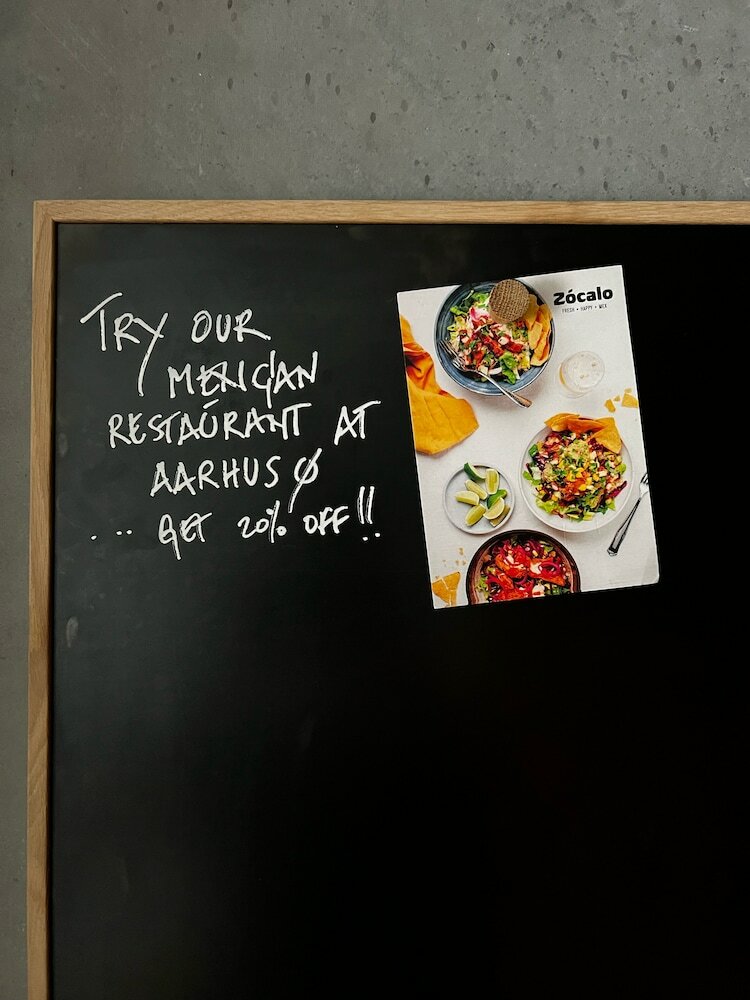 TRY OUR
MEXICAN
RESTAURANT AT
AARHUS Ø
... GET 20% OFF!!
Zócalo
FRESH • HAPPY • MEX